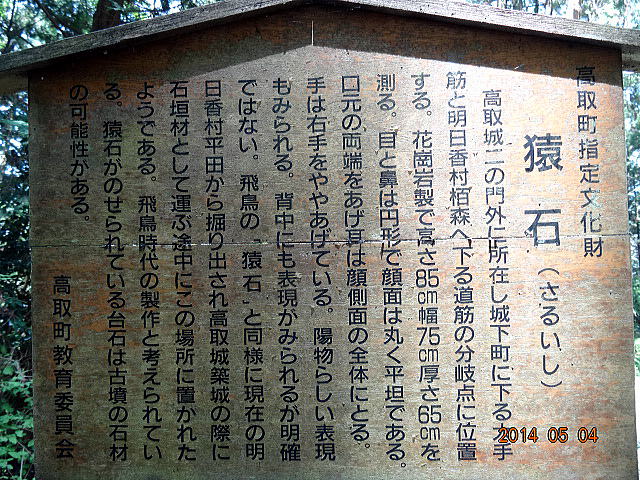 高取町指定文化財
猿石（さるいし）
高取城二の門外に所在し城下町に下る大手
筋と明日香村栢森へ下る道筋の分岐点に位置
する。花崗岩製で高さ85cm幅75cm厚さ65cmを
測る。目と鼻は円形で顔面は丸く平坦である。
口元の両端をあげ耳は顔側面の全体にとる。
手は右手をややあげている。陽物らしい表現
もみられる。背中にも表現がみられるが明確
ではない。飛鳥の「猿石」と同様に現在の明
日香村平田から掘り出され高取城築城の際に
石垣材として運ぶ途中にこの場所に置かれた
ようである。飛鳥時代の製作と考えられてい
る。猿石がのせられている台石は古墳の石材
の可能性がある。
高取町教育委員会
2014 05 04